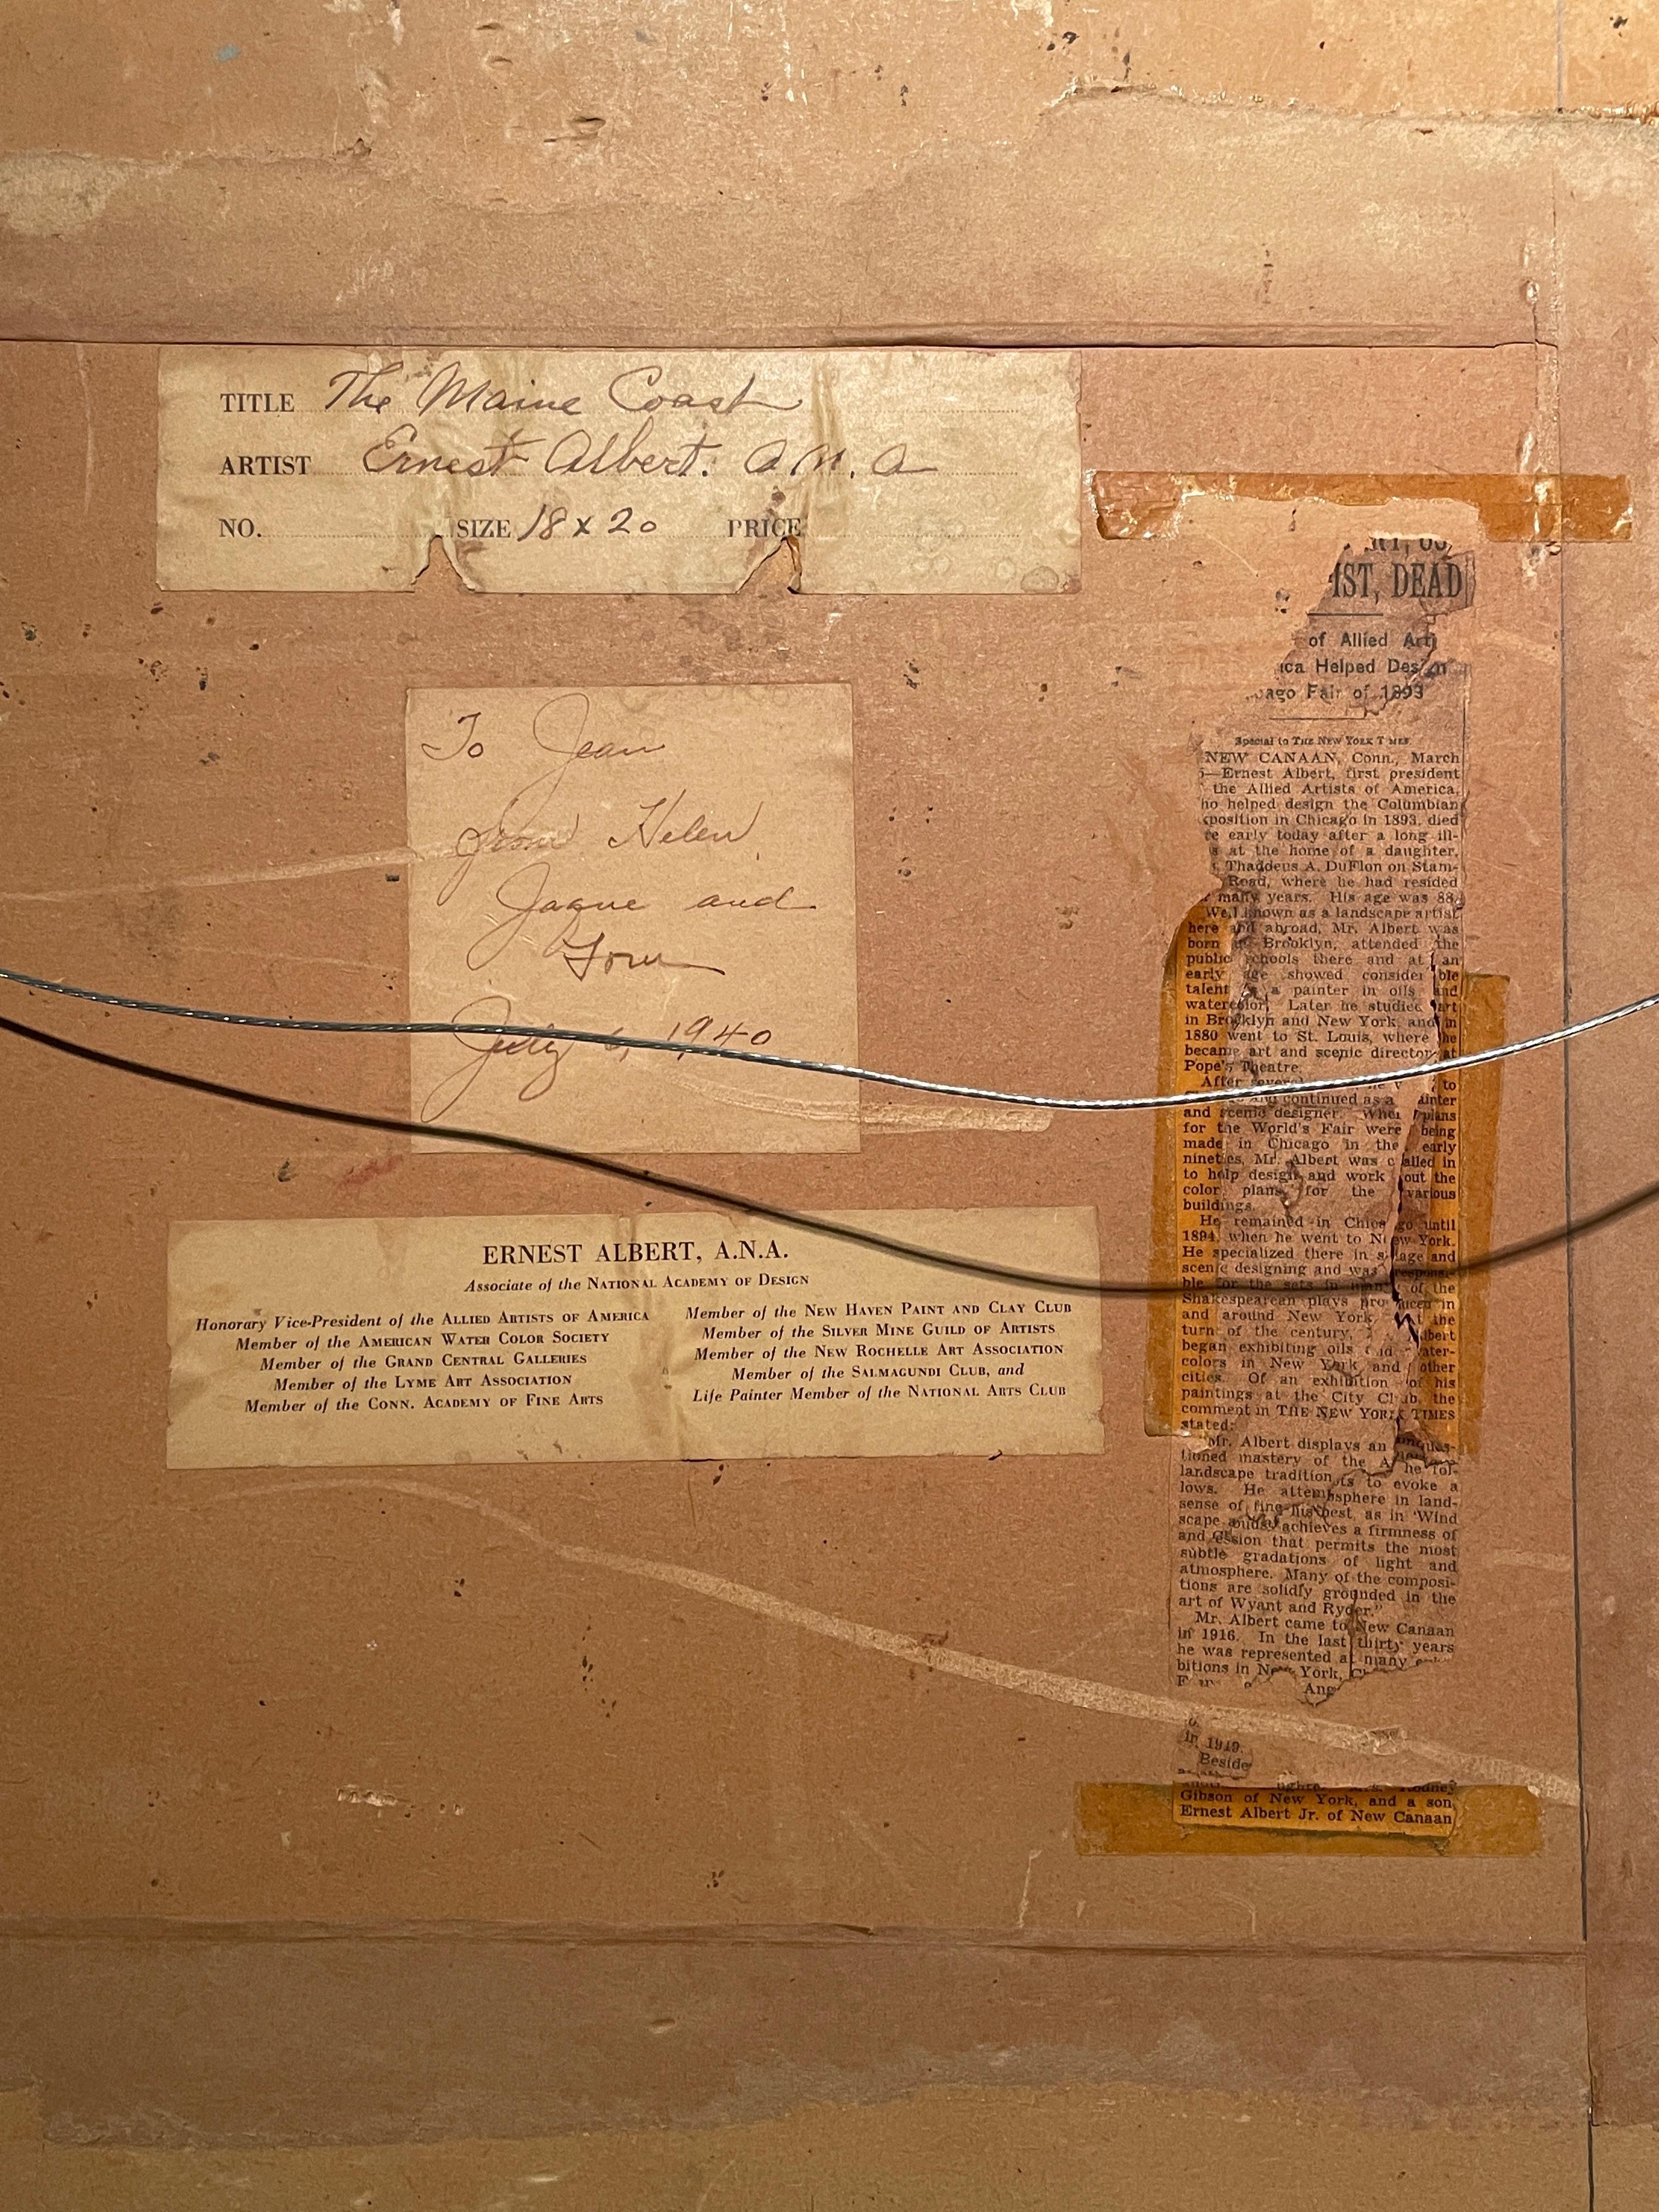 TITLE The Maine Coast
ARTIST Ernest Albert. A. N. A
NO. SIZE 18 x 20 PRICE
To Jean
from Helen,
and
July 6, 1940
ERNEST ALBERT, A.N.A.
Associate of the NATIONAL ACADEMY OF DESIGN
Honorary Vice-President of the ALLIED ARTISTS OF AMERICA
Member of the AMERICAN WATER COLOR SOCIETY
Member of the GRAND CENTRAL GALLERIES
Member of the LYME ART ASSOCIATION
Member of the CONN. ACADEMY OF FINE ARTS
Member of the NEW HAVEN PAINT AND CLAY CLUB
Member of the SILVER MINE GUILD OF ARTISTS
Member of the NEW ROCHELLE ART ASSOCIATION
Member of the SALMAGUNDI CLUB, and
Life Painter Member of the NATIONAL ARTS CLUB
IST, DEAD
of Allied Arti
ica Helped Design
ago Fair of 1893
Special to THE NEW YORK TIMES.
NEW CANAAN, Conn., March
—Ernest Albert, first president
the Allied Artists of America,
ho helped design the Columbian
xposition in Chicago in 1893, died
re early today after a long ill-
s at the home of a daughter,
Thaddeus A. DuFlon on Stam-
Road, where he had resided
many years. His age was 88.
Well known as a landscape artist
here and abroad, Mr. Albert was
born in Brooklyn, attended the
public schools there and at an
early age showed considerable
talent as a painter in oils and
watercolor. Later he studied art
in Brooklyn and New York, and in
1880 went to St. Louis, where he
became art and scenic director at
Pope's Theatre.
After several he to
and continued as a painter
and scenic designer. When plans
for the World's Fair were being
made in Chicago in the early
nineties, Mr. Albert was called in
to help design and work out the
color plans for the various
buildings.
He remained in Chicago until
1894, when he went to New York.
He specialized there in stage and
scenic designing and was responsi-
ble for the sets in many of the
Shakespearean plays produced in
and around New York. At the
turn of the century, Albert
began exhibiting oils and water-
colors in New York and other
cities. Of an exhibition of his
paintings at the City Club, the
comment in THE NEW YORK TIMES
stated:
"Mr. Albert displays an unques-
tioned mastery of the he fol-
landscape tradition to evoke a
lows. He attem sphere in land-
sense of 'Wind
scape achieves a firmness of
and ession that permits the most
subtle gradations of light and
atmosphere. Many of the composi-
tions are solidly grounded in the
art of Wyant and Ryder."
Mr. Albert came to New Canaan
in 1916. In the last thirty years
he was represented at many
bitions in New York,
Ang
in 1919.
Beside
Rodney
Gibson of New York, and a son,
Ernest Albert Jr. of New Canaan